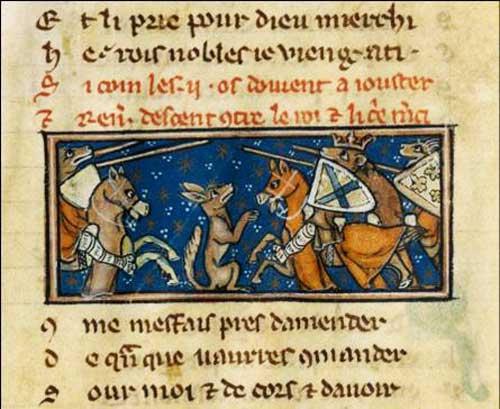 E t li prie pour dieu mierchi
h e · rois nobles ie vieng · a ti ·
S i com les · ii · os doivent a iouster
Et ren̄ · descent 9tre le roi ⁊ li c̃e m̃ci
9 me meffais pres damender
d e qñque vaurres 9mander
S our moi ⁊ de cors ⁊ davoir